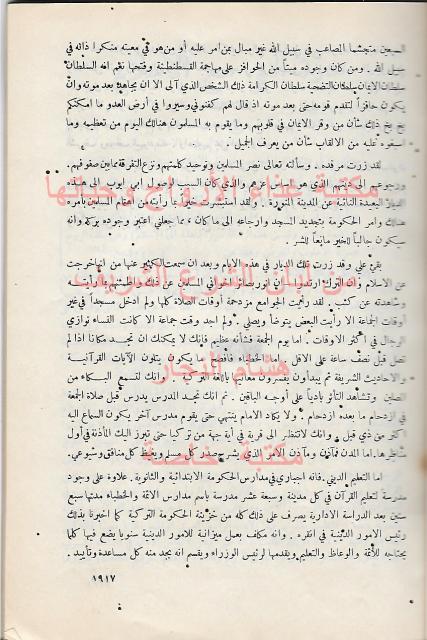 السبعين متجشما المصاعب في سبيل الله غير مبال بمن امر عليه أو من هو في معيته منكرا ذاته في
سبيل الله . ومن كان وجوده ميتاً من الحوافز على مهاجمة القسطنطينة وفتحها نعم انه السلطان
سلطان الايمان سلطان التضحية سلطان الكرامة ذلك الشخص الذي آلى الا ان يجاهد بعد موته وان
يكون حافزاً لتقدم قومه حتى بعد موته اذ قال لهم كفنوني وسيروا في أرض العدو ما امكنكم
بخ بخ ذلك شأن من وقر الايمان في قلوبهم وما يقوم به المسلمون هنالك اليوم من تعظيمه وما
اسبغوه عليه من الالقاب شأن من يعرف الجميل .
لقد زرت مرقده . وسألته تعالى نصر المسلمين وتوحيد كلمتهم ونزع التفرقة مابين صفوفهم .
ورجوعهم الى دينهم الذي هو اساس عزهم والذي كان السبب لوصول ابي ايوب الى هذه
البلاد البعيدة النائية عن المدينة المنورة . ولقد استبشرت خيراً بما رأيته من اهتمام المسلمين بأمره
هنالك وامر الحكومة بتجديد المسجد وارجاعه الى ما كان ، مما جعلني اعتبر وجوده بركة وانه
سيكون جالباً للخير مانعاً للشر .
بقي علي وقد زرت تلك الديار في هذه الايام وبعد ان سمعت الكثير عنها من انها خرجت
عن الاسلام وان اتراك
وشاهدته عن كثب . لقد رأيت الجوامع مزدحمة اوقات الصلاة كلها ولم ادخل مسجداً في غير
أوقات الجماعة الا رأيت البعض يتوضأ ويصلي . ولم اجد وقت جماعة الا كانت النساء توازي
الرجال في اكثر الاوقات . اما يوم الجمعة فشأنه عظيم فانك لا يمكنك ان تجد مكانا اذا لم
تصل قبل نصف ساعة على الاقل . اما الخطباء فأفصح ما يكون يتلون الآيات القرآنية
والاحاديث الشريفة ثم يبدأون بتفسير معانيها باللغة التركية . وانك لتسمع البكاء من
المصلين وتشاهد التأثر بادياً على أوجه الباقين . ثم انك تجد المدرس يدرس قبل صلاة الجمعة
في ازدحام ما بعده ازدحام . ولا يكاد الامام ينتهي حتى يقوم مدرس آخر يكون السماع اليه
اكثر من ذي قبل . وانك لاتنظر الى قرية في أية جهة من تركيا حتى تبرز اليك المأذنة في أول
مناظرها . اما المدن فمآذن ومآذن الامر الذي يشرح صدر كل مسلم ويغيظ كل منافق وشيوعي .
اما التعليم الديني . فانه اجباري في مدارس الحكومة الابتدائية والثانوية . علاوة على وجود
مدرسة لتعليم القرآن في كل مدينة وسبعة عشر مدرسة باسم مدارس الائمة والخطباء مدتها سبع
سنين بعد الدراسة الادارية يصرف على ذلك كله من خزينة الحكومة التركية كما اخبرنا بذلك
رئيس الامور الدينية في انقره . وانه مكلف بعمل ميزانية للامور الدينية سنويا يضع فيها كلما
يحتاجه للأئمة والوعاظ والتعليم ويقدمها لرئيس الوزراء ويقسم انه يجد منه كل مساعدة وتأييد .
١٩١٧
هشام النجار
مكتبة خاصة